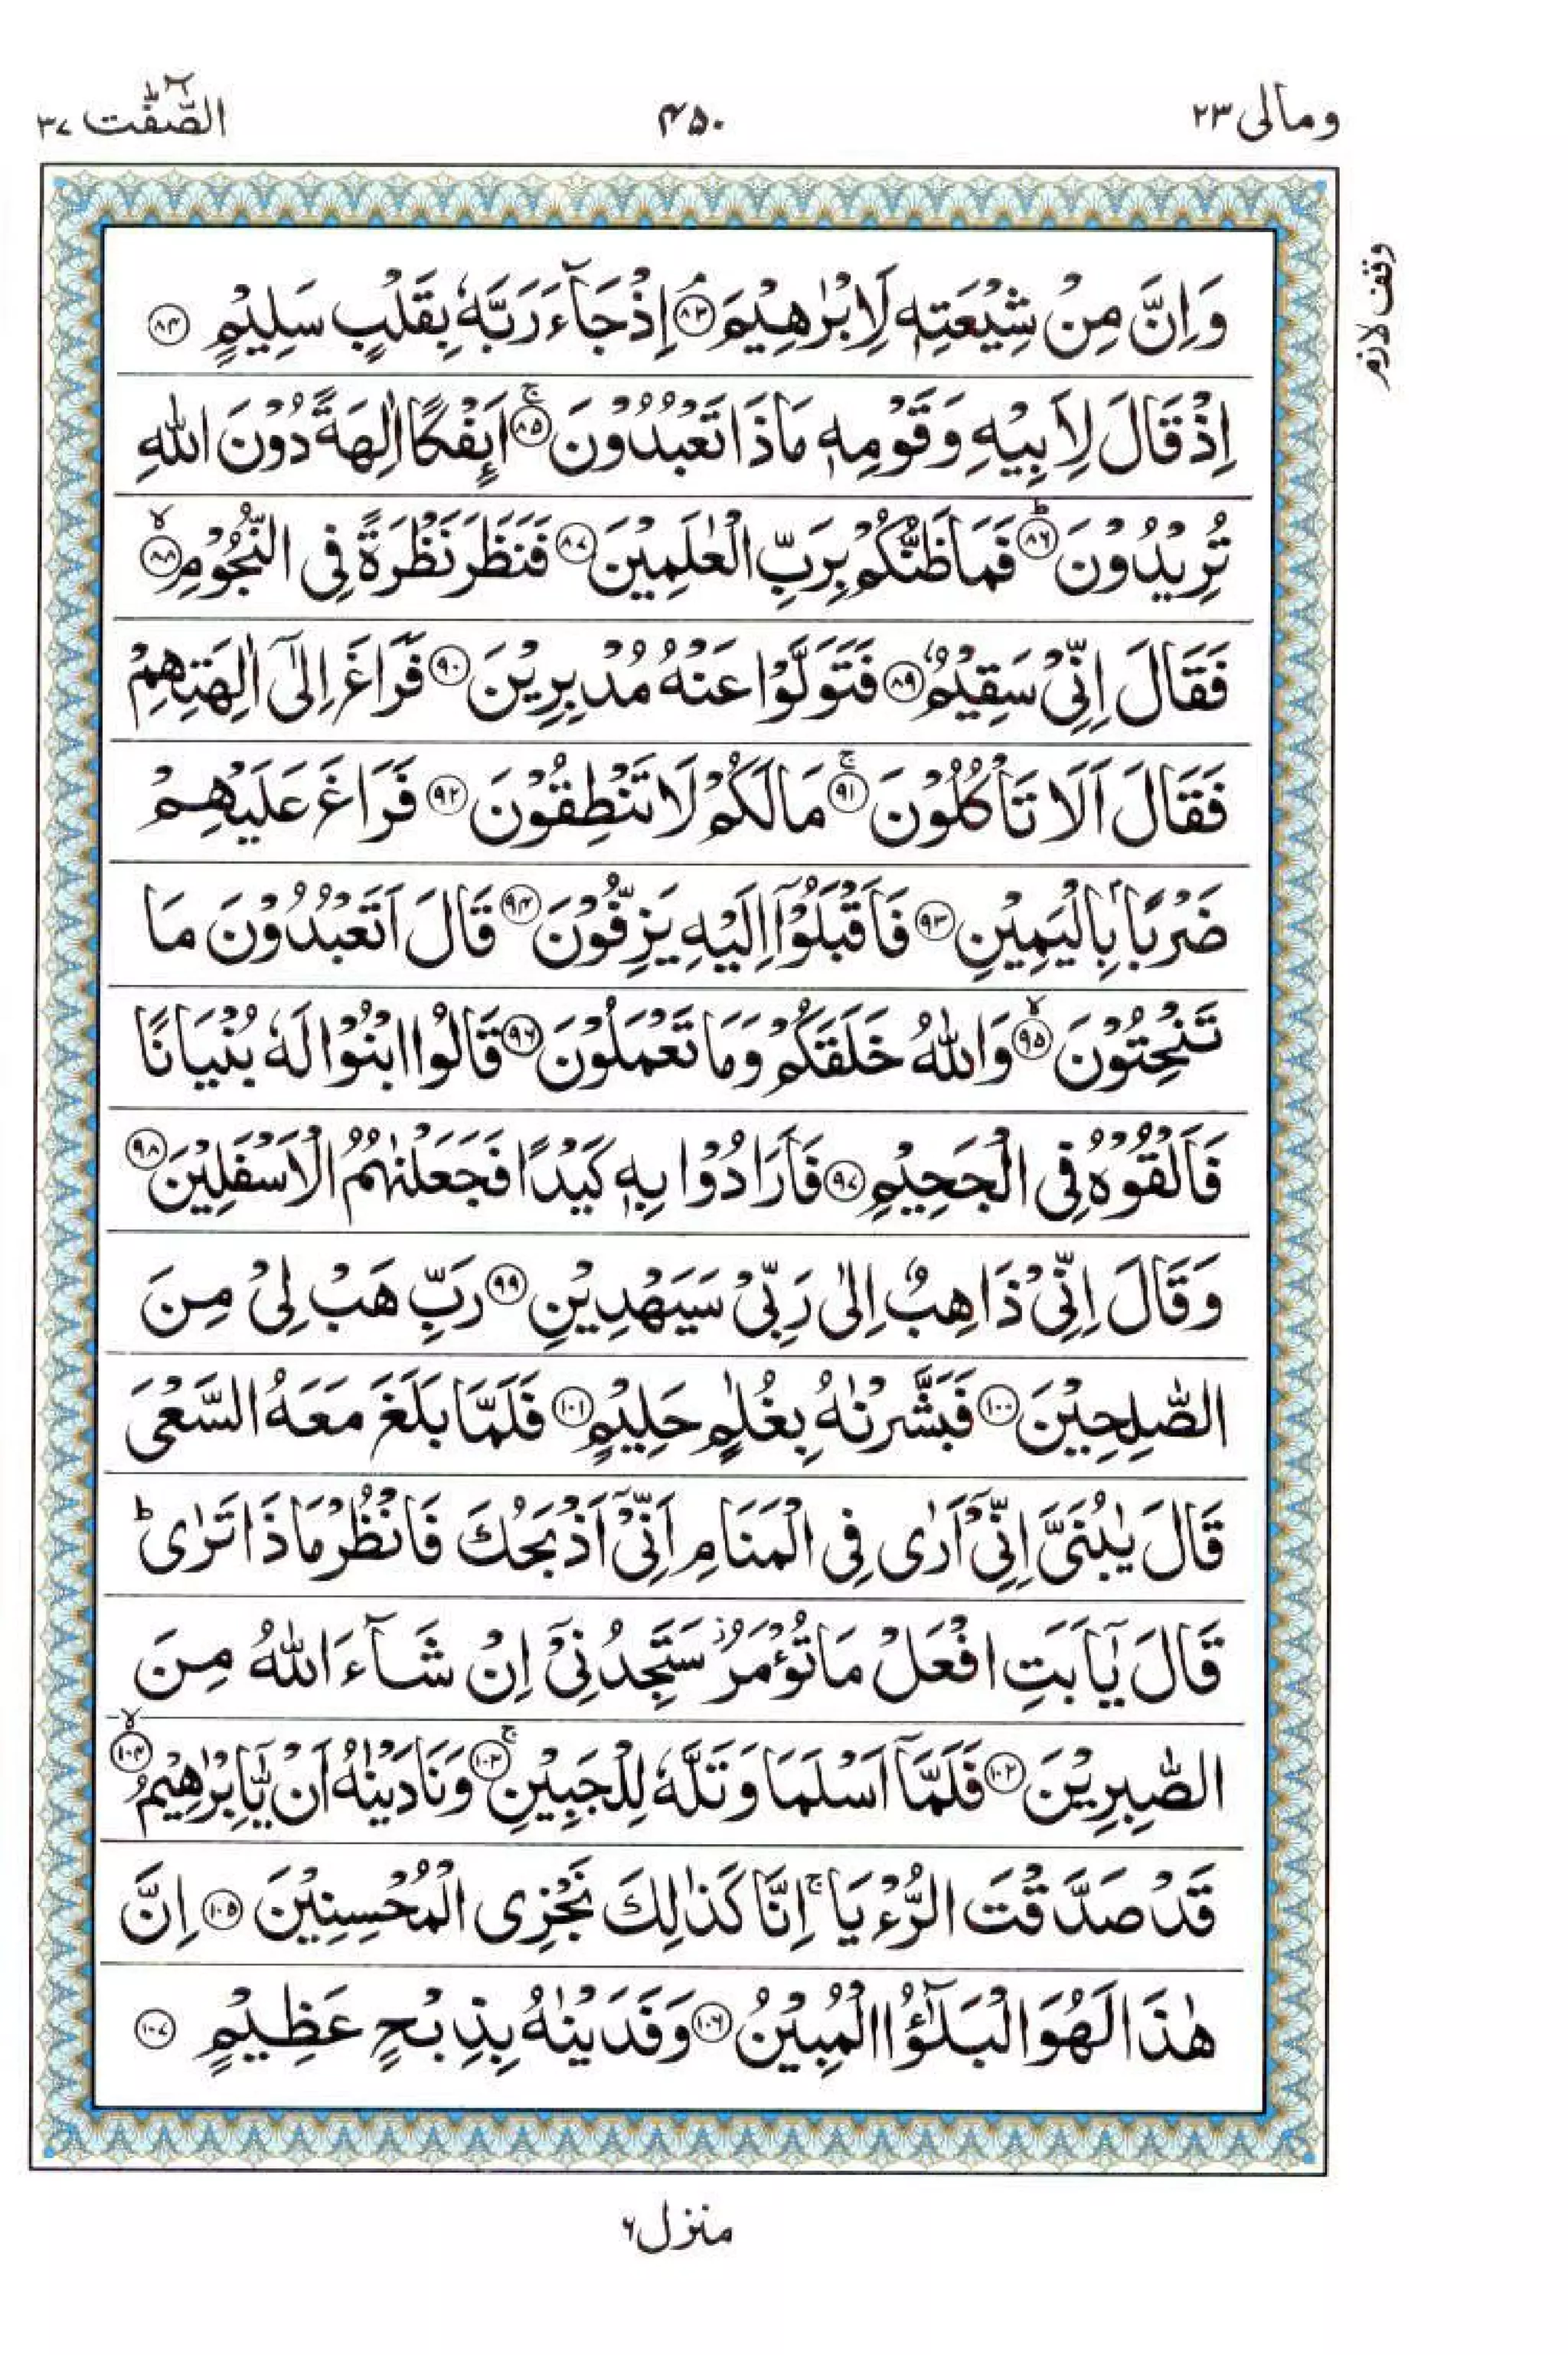 ومالی ٢٣
٤٥٠
الصّٰٓفّٰت ٣٧
وقف لازم
وَاِنَّ مِنْ شِيْعَتِهٖ لَاِبْرٰهِيْمَ ۘ ﴿٨٣﴾ اِذْ جَآءَ رَبَّهٗ بِقَلْبٍ سَلِيْمٍ ﴿٨٤﴾
اِذْ قَالَ لِاَبِيْهِ وَقَوْمِهٖ مَاذَا تَعْبُدُوْنَ ۚ ﴿٨٥﴾ اَىِٕفْكًا اٰلِهَةً دُوْنَ اللّٰهِ
تُرِيْدُوْنَ ؕ ﴿٨٦﴾ فَمَا ظَنُّكُمْ بِرَبِّ الْعٰلَمِيْنَ ﴿٨٧﴾ فَنَظَرَ نَظْرَةً فِى النُّجُوْمِ ۙ ﴿٨٨﴾
فَقَالَ اِنِّىْ سَقِيْمٌ ﴿٨٩﴾ فَتَوَلَّوْا عَنْهُ مُدْبِرِيْنَ ﴿٩٠﴾ فَرَاغَ اِلٰٓى اٰلِهَتِهِمْ
فَقَالَ اَلَا تَاْكُلُوْنَ ۚ ﴿٩١﴾ مَا لَكُمْ لَا تَنْطِقُوْنَ ﴿٩٢﴾ فَرَاغَ عَلَيْهِمْ
ضَرْبًۢا بِالْيَمِيْنِ ﴿٩٣﴾ فَاَقْبَلُوْۤا اِلَيْهِ يَزِفُّوْنَ ﴿٩٤﴾ قَالَ اَتَعْبُدُوْنَ مَا
تَنْحِتُوْنَ ۙ ﴿٩٥﴾ وَاللّٰهُ خَلَقَكُمْ وَمَا تَعْمَلُوْنَ ﴿٩٦﴾ قَالُوا ابْنُوْا لَهٗ بُنْيَانًا
فَاَلْقُوْهُ فِى الْجَحِيْمِ ﴿٩٧﴾ فَاَرَادُوْا بِهٖ كَيْدًا فَجَعَلْنٰهُمُ الْاَسْفَلِيْنَ ﴿٩٨﴾
وَقَالَ اِنِّىْ ذَاهِبٌ اِلٰى رَبِّىْ سَيَهْدِيْنِ ﴿٩٩﴾ رَبِّ هَبْ لِىْ مِنَ
الصّٰلِحِيْنَ ﴿١٠٠﴾ فَبَشَّرْنٰهُ بِغُلٰمٍ حَلِيْمٍ ﴿١٠١﴾ فَلَمَّا بَلَغَ مَعَهُ السَّعْىَ
قَالَ يٰبُنَىَّ اِنِّىْۤ اَرٰى فِى الْمَنَامِ اَنِّىْۤ اَذْبَحُكَ فَانْظُرْ مَاذَا تَرٰى ؕ
قَالَ يٰۤاَبَتِ افْعَلْ مَا تُؤْمَرُ ز سَتَجِدُنِىْۤ اِنْ شَآءَ اللّٰهُ مِنَ
الصّٰبِرِيْنَ ﴿١٠٢﴾ فَلَمَّاۤ اَسْلَمَا وَتَلَّهٗ لِلْجَبِيْنِ ۚ ﴿١٠٣﴾ وَنَادَيْنٰهُ اَنْ يّٰۤاِبْرٰهِيْمُ ۙ ﴿١٠٤﴾
قَدْ صَدَّقْتَ الرُّءْيَا ۚ اِنَّا كَذٰلِكَ نَجْزِى الْمُحْسِنِيْنَ ﴿١٠٥﴾ اِنَّ
هٰذَا لَهُوَ الْبَلٰٓؤُا الْمُبِيْنُ ﴿١٠٦﴾ وَفَدَيْنٰهُ بِذِبْحٍ عَظِيْمٍ ﴿١٠٧﴾
منزل ٦